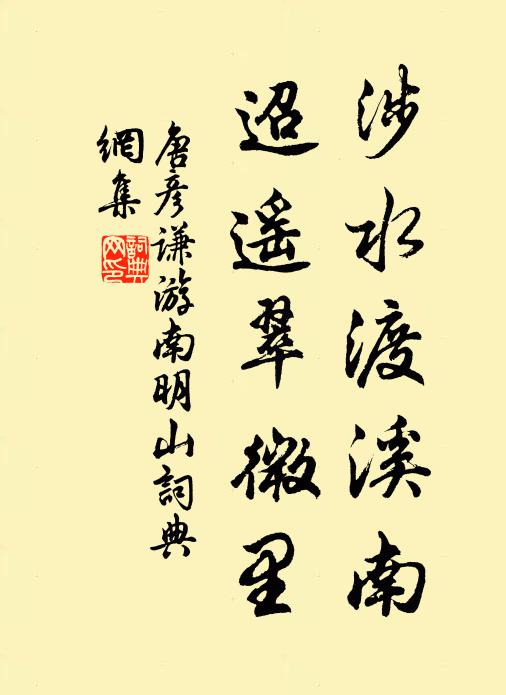 涉水渡溪南
迢遥翠微里
唐彦谦游南明山詞典
網集
詞典網印